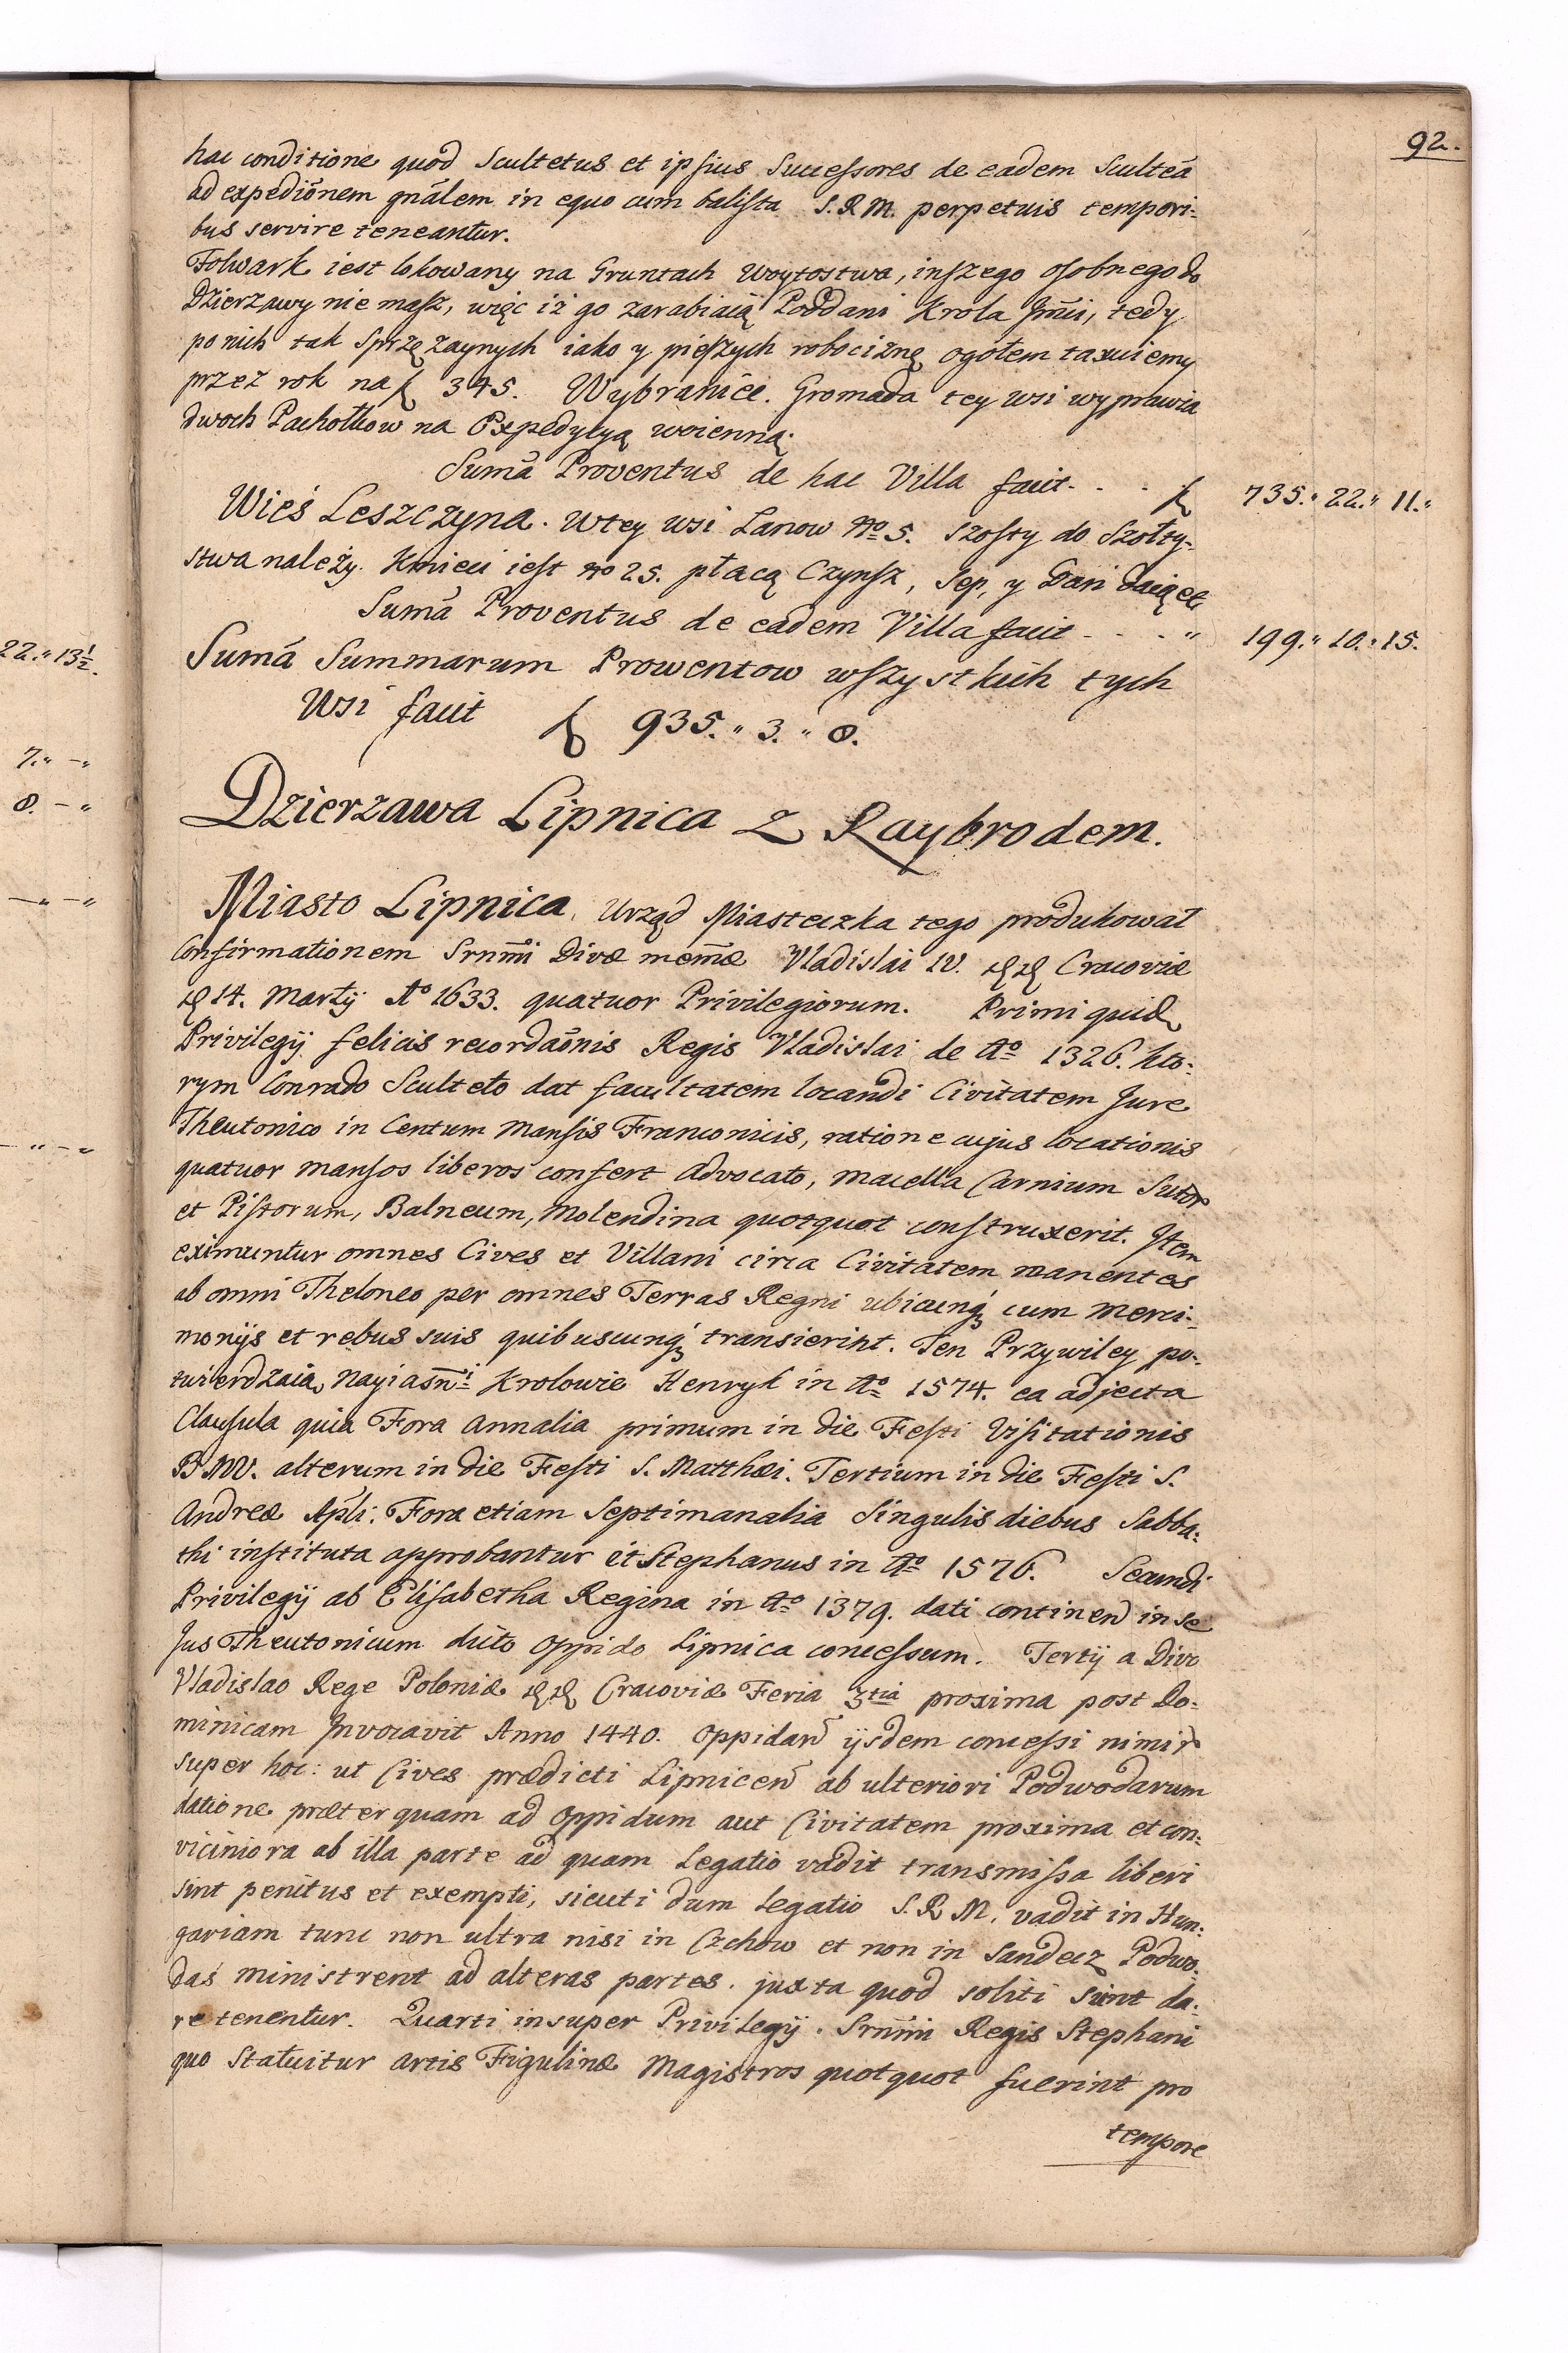 92.
hac conditione quod Scultetus et ipsius Successores de eadem Sculteã
ad expediõnem gnãlem in equo cum balista S.R.M. perpetuis tempori-
bus servire teneantur.
Folwark iest lokowany na Gruntach Woytostwa, inszego osobnego do
Dzierzawy nie masz, więc iż go zarabiaią Poddani Krola Jm̃ci, tedy
po nich tak Sprzężaynych iako y pieszych robociznę ogołem taxuiemy
przez rok na f 345. Wybrańce. Gromada tey wsi wyprawia
dwoch Pachołkow na Expedycyą woienną.
Sum̃a Proventus de hac Villa facit - - - f 735.„ 22.„ 11.„
Wieś Leszczyna. W tey wsi Lanow No 5. szosty do Szołty-
stwa należy. Kmieci iest No 25. płacą Czynsz, Sep, y Dań daią etc
Sum̃a Proventus de eadem Villa facit - - - „ 199.„ 10.„ 15.
Sum̃a Summarum Prowentow wszystkich tych
Wsi facit f 935.„ 3.„ 8.
Dzierzawa Lipnica z Raybrodem.
Miasto Lipnica. Urząd Miasteczka tego produkował
Confirmationem Srnm̃i Divæ mem̃æ Vladislai IV. Cracoviæ
14. Martij Ao 1633. quatuor Privilegiorum. Primi quid
Privilegij felicis recordaõnis Regis Vladislai de Ao 1326. kto-
rym Conrado Sculteto dat facultatem locandi Civitatem Jure
Theutonico in Centum Mansis Franconicis, ratione cujus locationis
quatuor mansos liberos confert Advocato, macella Carnium Sutor
et Pistorum, Balneum, Molendina quotquot construxerit. Item
eximuntur omnes Cives et Villani circa Civitatem manentes
ab omni Theloneo per omnes Terras Regni ubicunq́ȝ cum Merci-
monijs et rebus suis quibuscunq́ȝ transierint. Ten Przywiley po-
twierdzaią Nayiasñi Krolowie Henryk in Ao 1574. ea adjecta
Clausula quia Fora Annalia primum in die Festi Visitationis
B.M.V. alterum in die Festi S. Matthæi. Tertium in die Festi S.
Andreæ Apli. Fora etiam Septimanalia Singulis diebus Sabba-
thi instituta approbantur et Stephanus in Ao 1576. Secundi
Privilegij ab Elisabetha Regina in Ao 1379. dati continen in se
Jus Theutonicum dicto Oppido Lipnica concessum. Tertij a Divo
Vladislao Rege Poloniæ Cracoviæ Feria 3tia proxima post Do-
minicam Invocavit Anno 1440. Oppidan ijsdem concessi nimir
super hoc: ut Cives prædicti Lipnicen ab ulteriori Podwodarum
datione præterquam ad Oppidum aut Civitatem proxima et con-
viciniora ab illa parte ad quam Legatio vadit transmissa liberi
sint penitus et exempti, sicuti dum Legatio S.R.M. vadit in Hun-
gariam tunc non ultra nisi in Czchow et non in Sandecz Podwo-
das ministrent ad alteras partes. juxta quod soliti sient da-
re tenentur. Quarti insuper Privilegij. Srnm̃i Regis Stephani
quo Statuitur Artis Figulinæ Magistros quotquot fuerint pro
tempore
22.„ 13½.
7.„ –„
8. – „
–„ –„
– „ – „